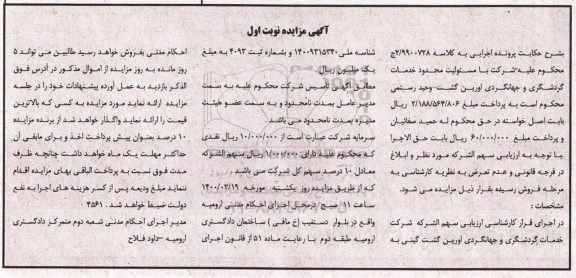 آگهی مزایده نوبت اول
بشرح حکایت پرونده اجرایی به کلاسه ۲/۹۹۰۰۷۳۸ج
محکوم علیه-شرکت با مسئولیت محدود خدمات
گردشگری و جهانگردی اورین گشت-وحید رسمی
محکوم است به پرداخت مبلغ ۲/۱۸۸/۵۶۴/۸۰۶ ریال
بابت اصل خواسته در حق محکوم له حمید سفائیان
و پرداخت مبلغ ۶۰/۰۰۰/۰۰۰ ریال بابت حق الاجرا
با توجه به ارزیابی سهم الشرکه مورد نظر و ابلاغ
در فرجه قانونی و عدم تعرض به نظریه کارشناسی به
مرحله فروش رسیده بقرار ذیل مزایده می شود.
مشخصات :
در اجرای قرار کارشناسی ارزیابی سهم الشرکه شرکت
خدمات گردشگری و جهانگردی اورین گشت گیتی به
شناسه ملی ۱۴۰۰۹۳۱۵۳۴۰ و بشماره ثبت ۴۰۹۲ به مبلغ
یک میلیون ریال.
مطابق آگهی تاسیس شرکت محکوم علیه به سمت
مدیر عامل بمدت نامحدود و به سمت عضو هیئت
مدیره بمدت نامحدود می باشد.
سرمایه شرکت عبارت است از ۱۰/۰۰۰/۰۰۰ ریال نقدی
که محکوم علیه دارای ۱/۰۰۰/۰۰۰ ریال سهم الشرکه
معادل ۱۰ درصد سهم کل شرکت می باشد.
که از طریق مزایده روز یکشنبه مورخه ۱۴۰۰/۰۲/۱۹
ساعت ۱۱ صبح درمحل اجرای احکام مدنی ارومیه
واقع در بلوار دستغیب (خ مافی) ساختمان دادگستری
ارومیه طبقه دوم با رعایت ماده ۵۱ از قانون اجرای
احکام مدنی بفروش خواهد رسید طالبین می تواند ۵
روز مانده به روز مزایده از اموال مذکور در آدرس فوق
الذکر بازدید به عمل آورده پیشنهادات خود را در جلسه
مزایده ارائه نماید مورد مزایده به کسی که بالاترین
قیمت را ارائه نماید واگذار خواهد شد از برنده مزایده
۱۰ درصد بعنوان پیش پرداخت اخذ و برای مابقی آن
حداکثر مهلت یک ماه خواهد داشت چنانچه ظرف
مدت فوق نسبت به پرداخت الباقی بهای مزایده اقدام
نتماید مبلغ ودیعه پس از کسر هزینه های اجرا به نفع
دولت ضبط خواهد شد. ۴۵۶۱
مدیر اجرای احکام مدنی شعبه دوم متمرکز دادگستری
ارومیه -داود فلاح